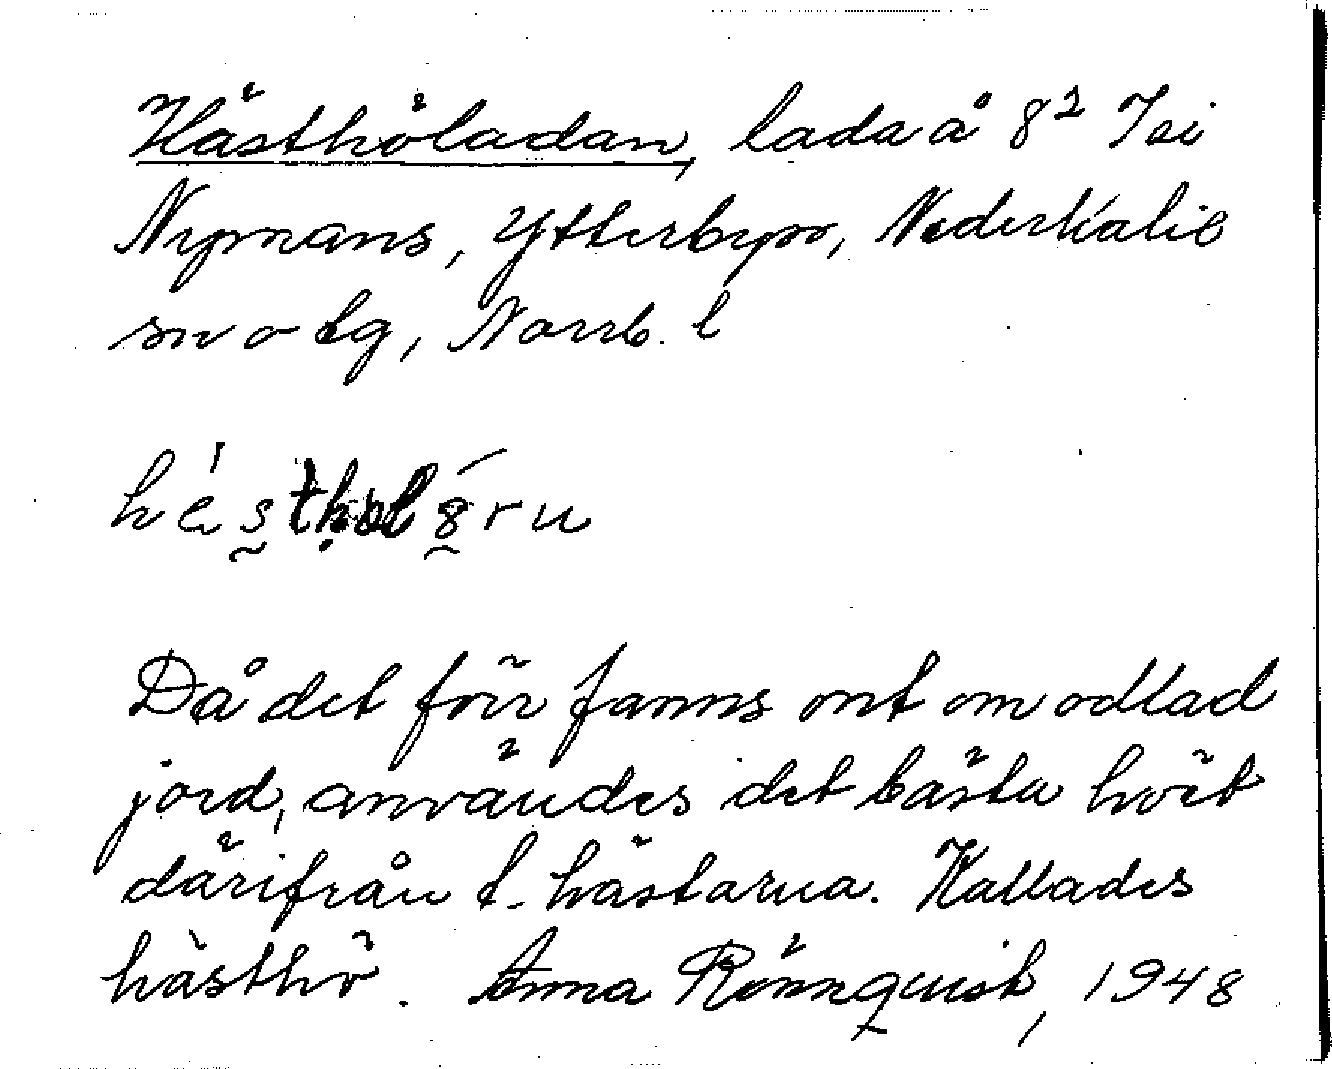 Hästhöladan, lada å 8² Isi
Nymans, Ytterbyn, Nederkalix
sn o tg, Norrb. l
Då det förr fanns ont om odlad
jord, användes det bästa höet
därifrån t. hästarna. Kallades
hästhö. Anna Rönnquist, 1948